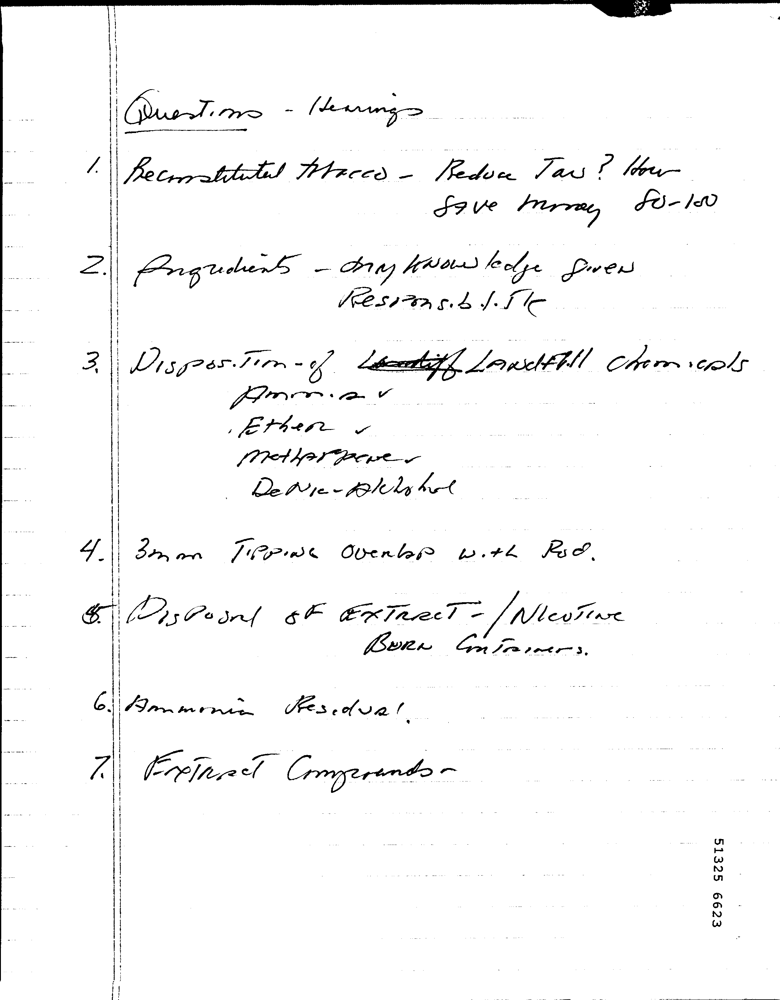 Questions - Hearings
1. Reconstituted tobacco - Reduce Tar? How
Save money 80-100
2. Ingredients - Any knowledge given
Responsibility
3. Disposition - of Landfill chemicals
✓
Ether ✓
✓
DeNic - Alchohol
4. 3mm Tipping Overlap with Rod.
5. Disposal of Extract - / Nicotine
Burn Containers.
6. Ammonia Residual.
7. Extract Compounds -
51325 6623